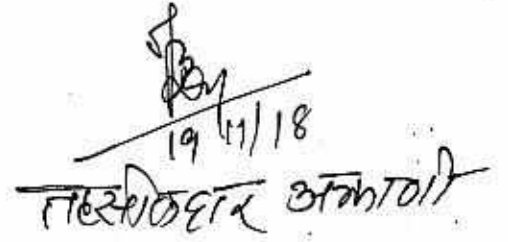 19/11/18
तहसिलदार अक्राणी